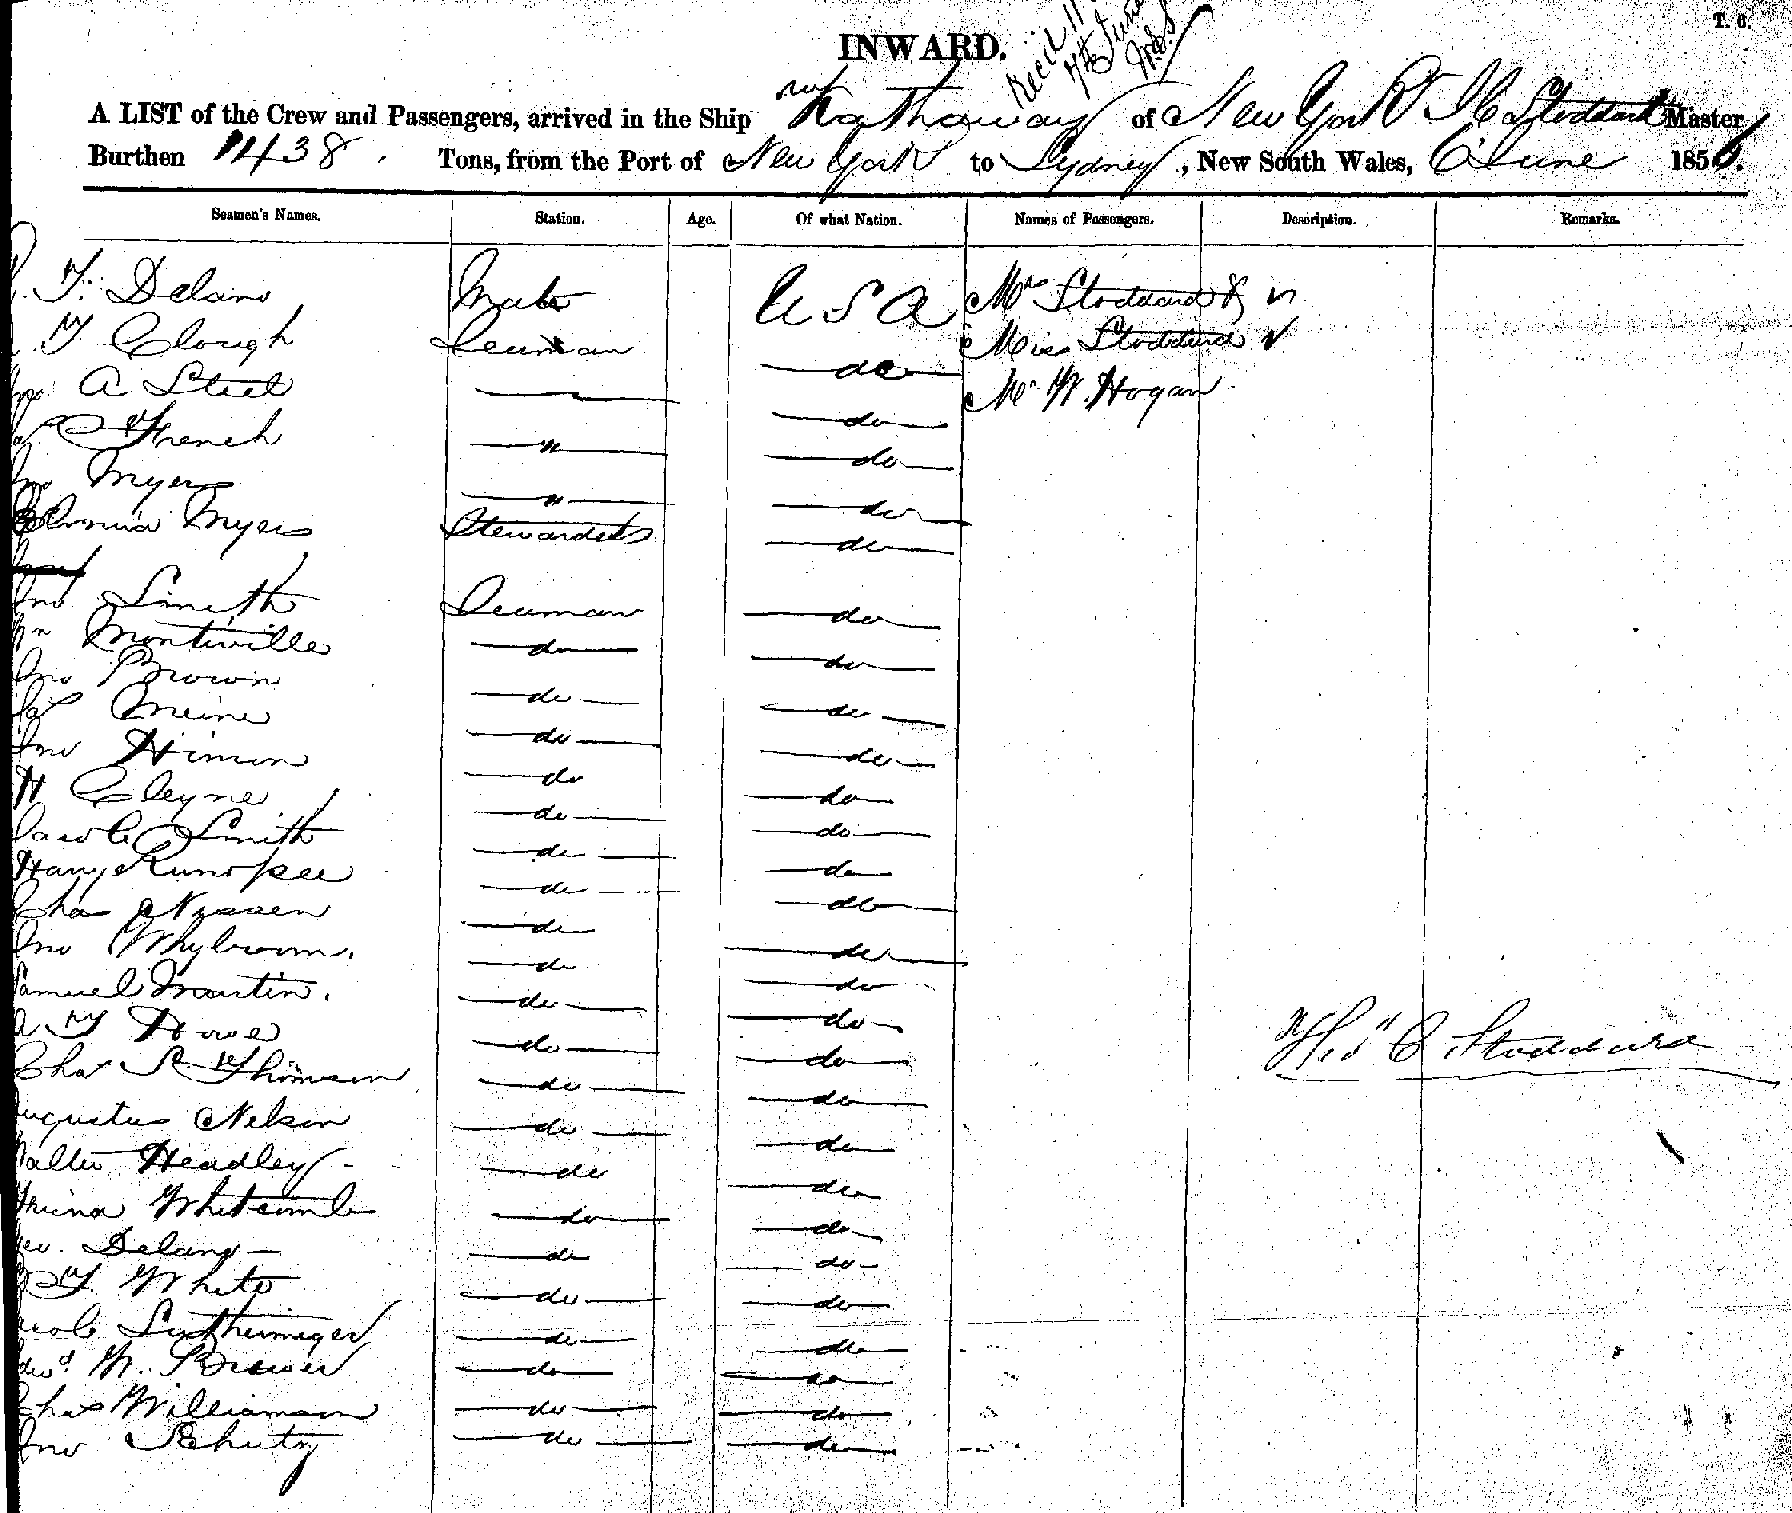 T. 6.
INWARD.
Rec'd 11
7th June
A LIST of the Crew and Passengers, arrived in the Ship Hathaway of New York Stoddard Master
Burthen 1438. Tons, from the Port of New York to Sydney, New South Wales, 6 June 1856.
Seamen's Names. Station. Age. Of what Nation. Names of Passengers. Description. Remarks.
T. Delano Mate U S A Mrs Stoddard &
T Clough Seaman do Miss Stoddard
A Steel do Mr W. Hogan
French " do
Jno Myers " do
Myers Stewardess do
Jno Smith Seaman do
Wm Montiville do do
Jno Brown do do
Meine do do
Jno Himan do do
H Cleyne do do
Jacob Smith do do
Harry do do
Chas Nissen do do
Jno Whybrom. do do
Samuel Martin. do do
Howe do do
Thos C Stoddard
Chas R Thomson do do
Augustus Nelson do do
Walter Headley do do
Whitcomb do do
Geo. Delano do do
T. White do do
Jacob Luthermeyer do do
Edwd W. Brewer do do
Chas Williamson do do
Jno Schutz do do